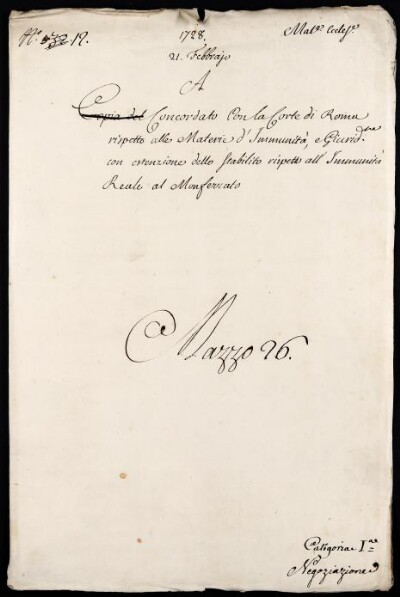 N.º 12.
1728.
Mat.e Eccles.e
21. Febbrajo
A
Copia del Concordato con la Corte di Roma
rispetto alle Materie d'Immunità, e Giurid.ne
con estenzione dello stabilito rispetto all'Immunità
Reale al Monferrato
Mazzo 26.
Categoria I.ma
Negoziazione